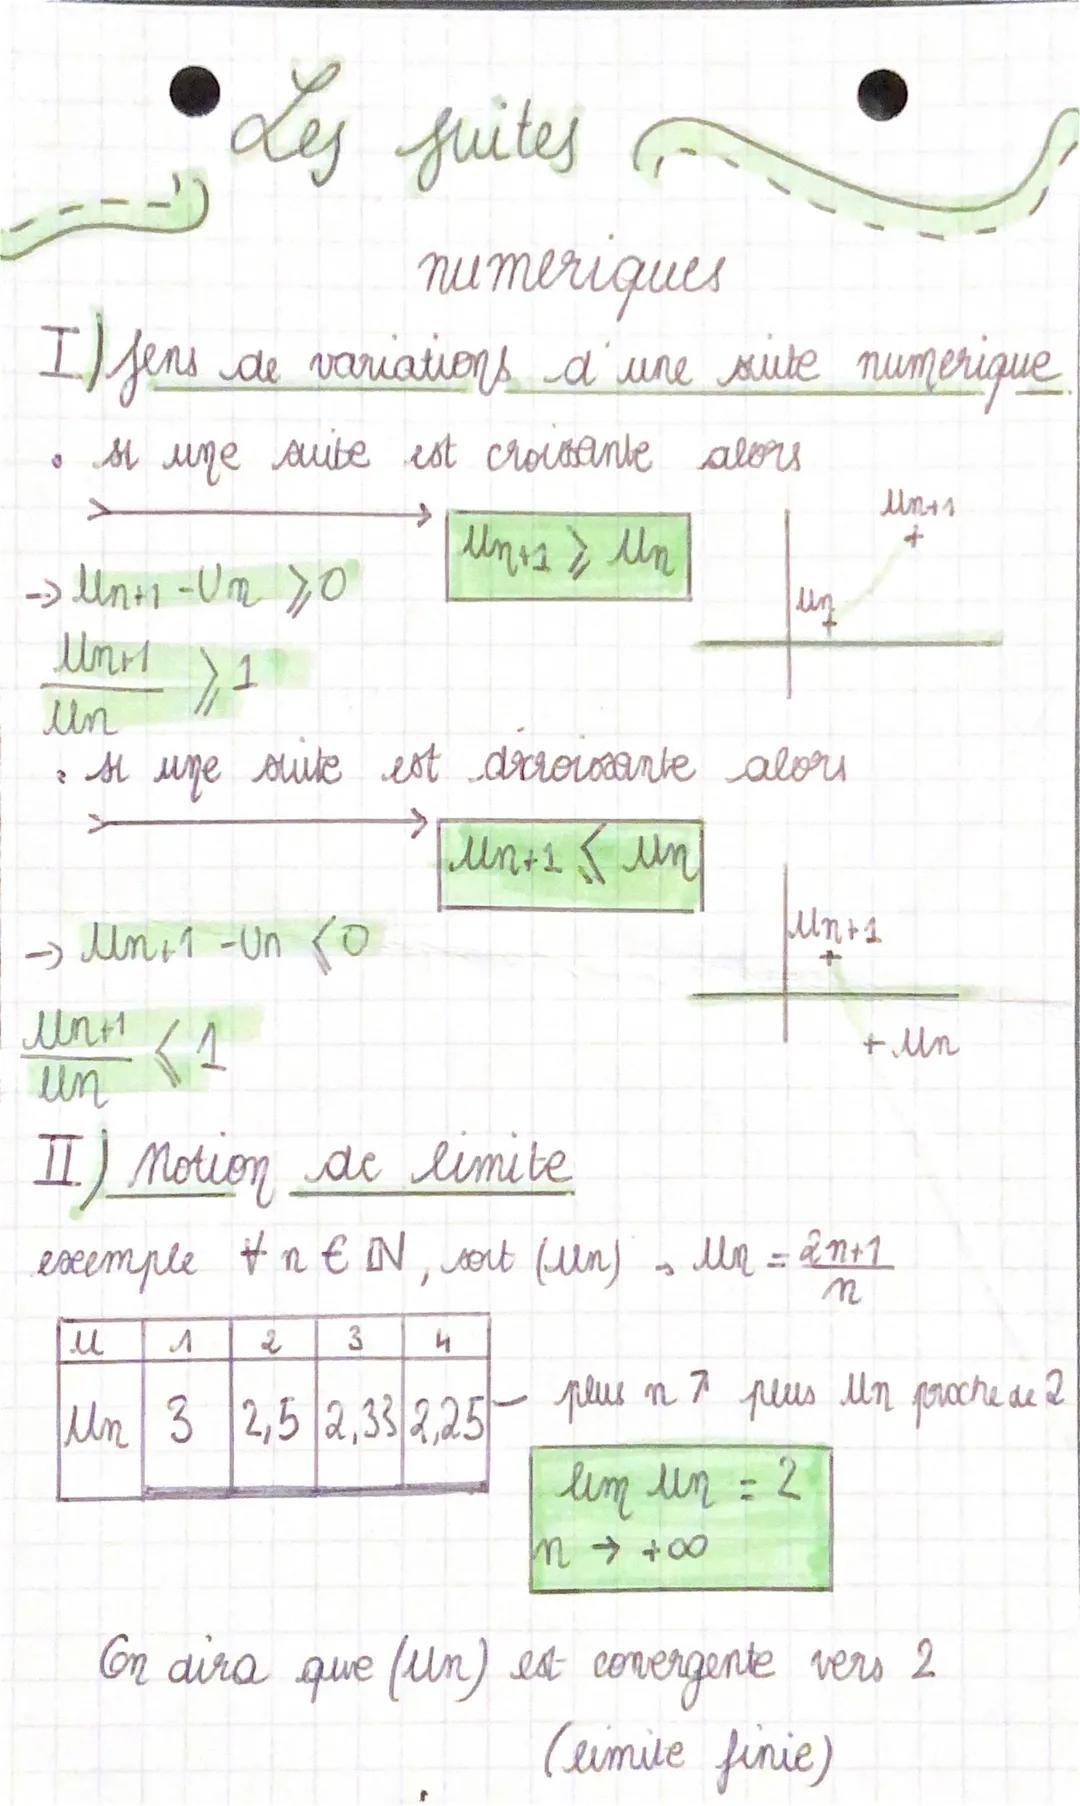 Les suites
numeriques
I) Sens de variations d'une suite numerique
• si une suite est croissante alors
Un+1
Un+1 ⩾ Un
→ Un+1 - Un ⩾ 0
Un
Un+1 / Un ⩾ 1
: si une suite est décroissante alors
Un+1 ⩽ Un
Un+1
→ Un+1 - Un ⩽ 0
Un+1 / Un ⩽ 1
+ Un
II) Notion de limite
exemple ∀ n ∈ ℕ, soit (Un) → Un = 2n+1 / n
U 1 2 3 4
Un 3 2,5 2,33 2,25 — plus n ↗ plus Un proche de 2
lim Un = 2
n → +∞
On dira que (Un) est convergente vers 2
(limite finie)